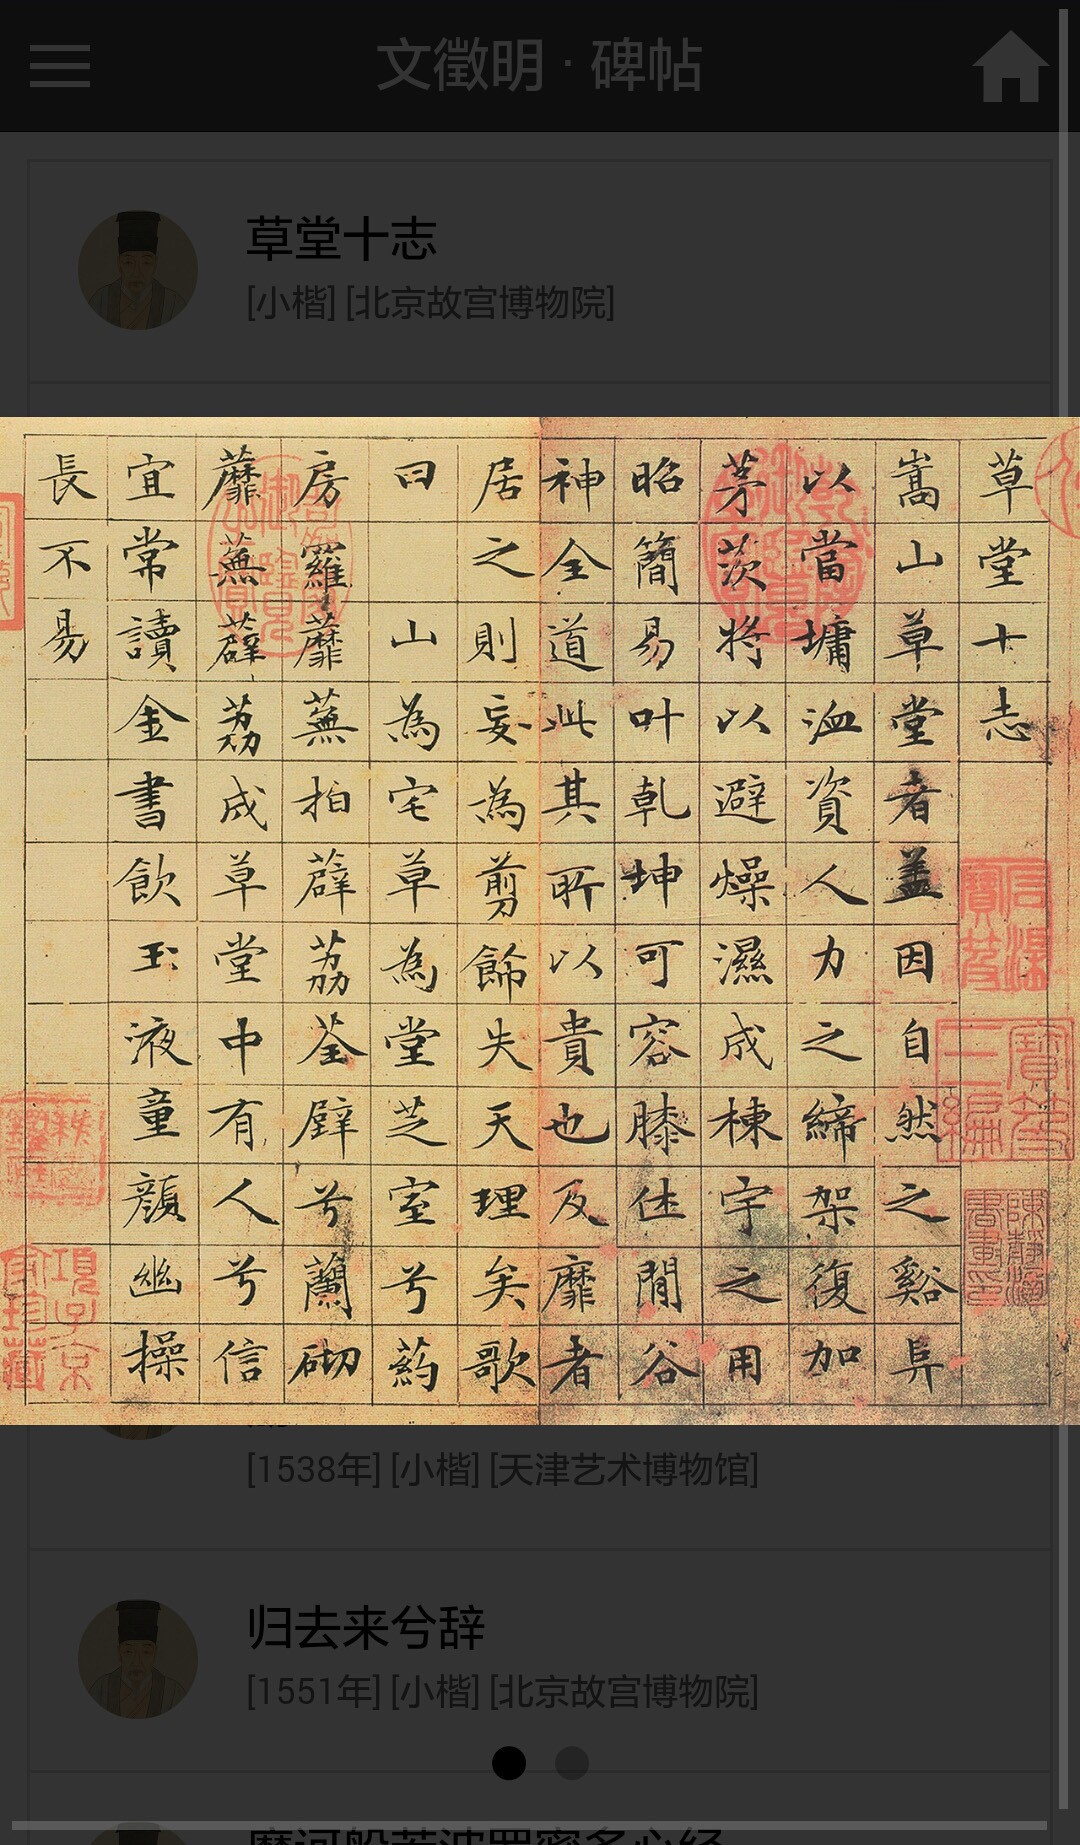 文徵明 · 碑帖
草堂十志
[小楷] [北京故宫博物院]
草堂十志
嵩山草堂者盖因自然之谿阜
以當墉洫資人力之締架復加
茅茨將以避燥濕成棟宇之用
昭簡易叶乾坤可容膝休閒谷
神全道此其所以貴也及靡者
居之則妄為剪飾失天理矣歌
曰 山為宅草為堂芝室兮葯
房羅蘼蕪拍薜荔荃壁兮蘭砌
蘼蕪薜荔成草堂中有人兮信
宜常讀金書飲玉液童顏幽操
長不易
[1538年] [小楷] [天津艺术博物馆]
归去来兮辞
[1551年] [小楷] [北京故宫博物院]
摩诃般若波罗蜜多心经